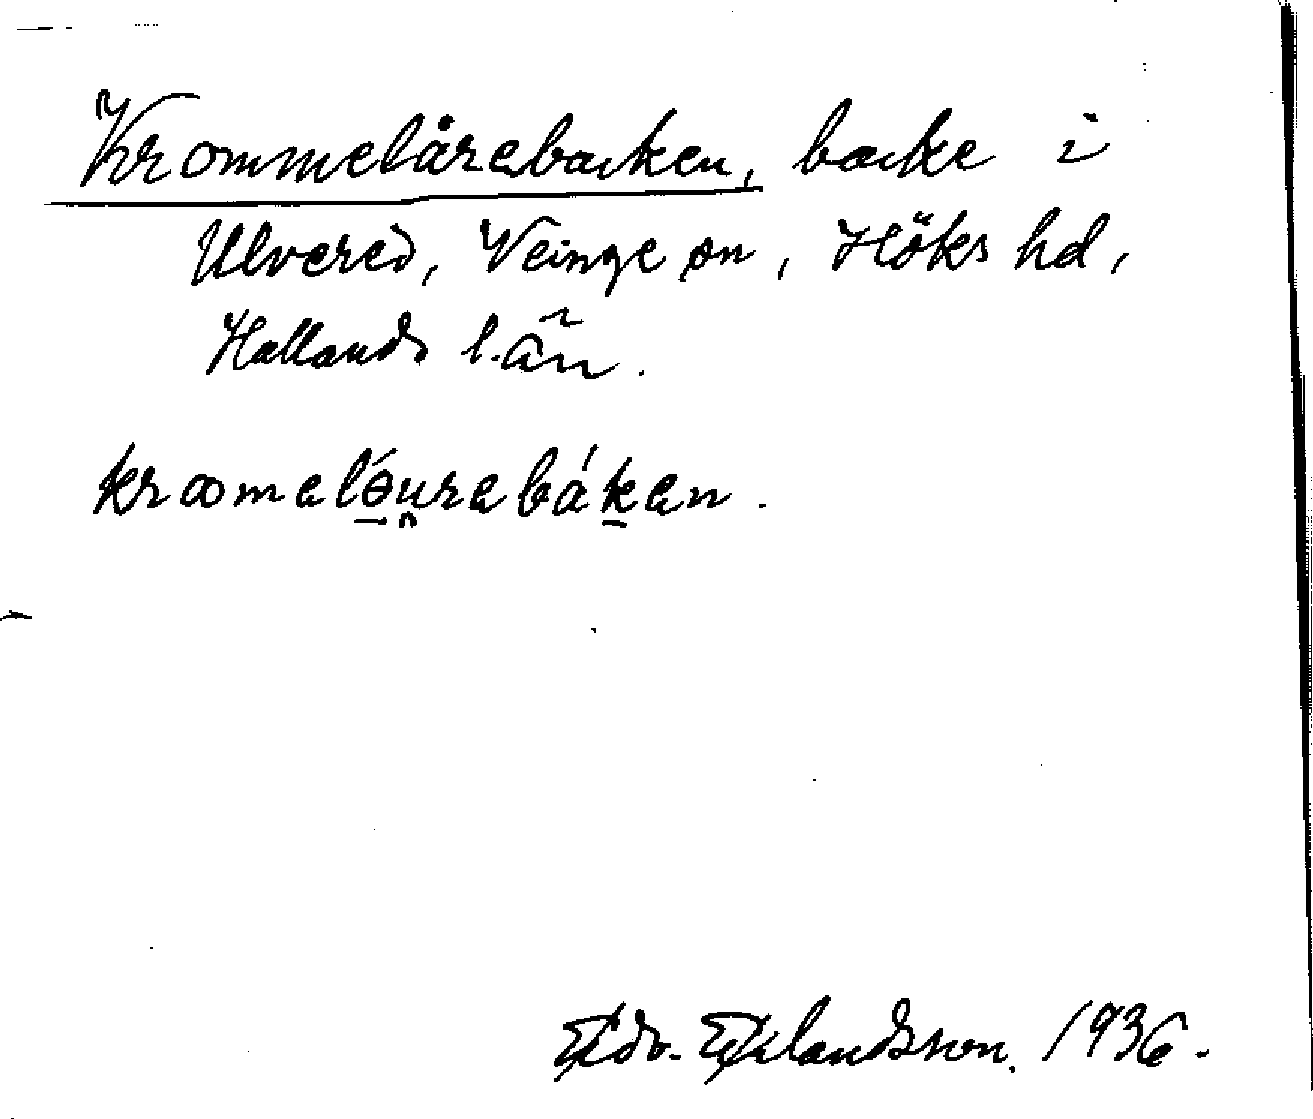 Krommelårebacken, backe i
Ulvered, Veinge sn, Höks hd,
Hallands l. än.
kroomelǿu̯rebáken.
Edv. Erlandsson. 1936.